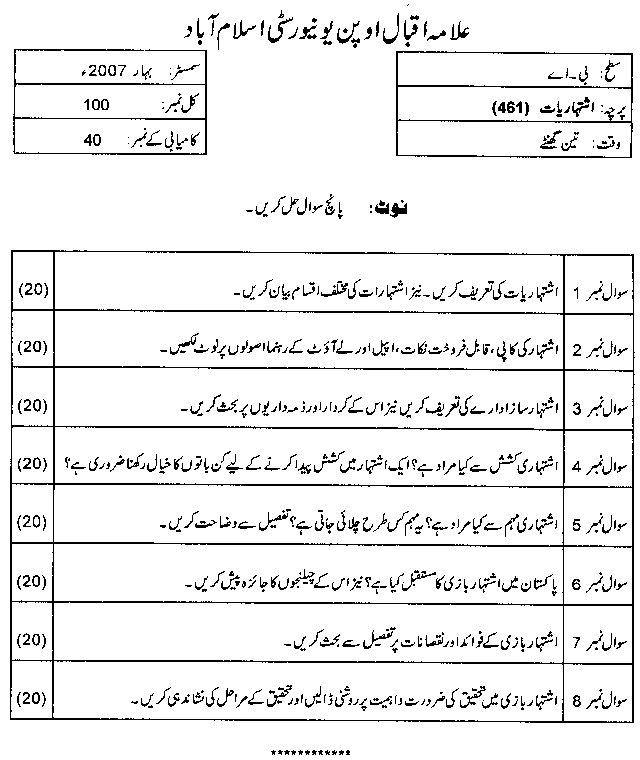 علامہ اقبال اوپن یونیورسٹی اسلام آباد
سطح: بی۔اے
پرچہ: اشتہاریات (461)
وقت: تین گھنٹے
سمسٹر: بہار 2007ء
کل نمبر: 100
کامیابی کے نمبر: 40
نوٹ: پانچ سوال حل کریں۔
سوال نمبر 1 اشتہاریات کی تعریف کریں۔ نیز اشتہارات کی مختلف اقسام بیان کریں۔ (20)
سوال نمبر 2 اشتہار کی کاپی، قابل فروخت نکات، اپیل اور لے آؤٹ کے رہنما اصولوں پر نوٹ لکھیں۔ (20)
سوال نمبر 3 اشتہار ساز ادارے کی تعریف کریں نیز اس کے کردار اور ذمہ داریوں پر بحث کریں۔ (20)
سوال نمبر 4 اشتہاری کشش سے کیا مراد ہے؟ ایک اشتہار میں کشش پیدا کرنے کے لیے کن باتوں کا خیال رکھنا ضروری ہے؟ (20)
سوال نمبر 5 اشتہاری مہم سے کیا مراد ہے؟ یہ مہم کس طرح چلائی جاتی ہے؟ تفصیل سے وضاحت کریں۔ (20)
سوال نمبر 6 پاکستان میں اشتہار بازی کا مستقبل کیا ہے؟ نیز اس کے چیلنجوں کا جائزہ پیش کریں۔ (20)
سوال نمبر 7 اشتہار بازی کے فوائد اور نقصانات پر تفصیل سے بحث کریں۔ (20)
سوال نمبر 8 اشتہار بازی میں تحقیق کی ضرورت و اہمیت پر روشنی ڈالیں اور تحقیق کے مراحل کی نشاندہی کریں۔ (20)
************